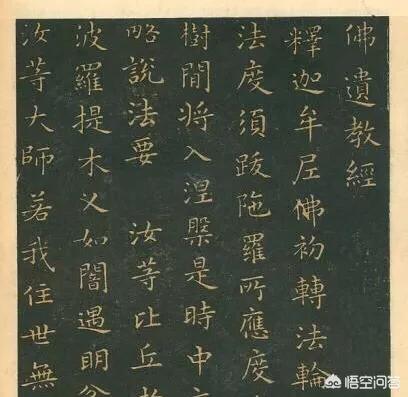 佛遺教經
釋迦牟尼佛初轉法輪
法度須跋陁羅所應度
樹間將入涅槃是時中
略說法要 汝等比丘
波羅提木叉如闇遇明
汝等大師若我住世無
悟空问答